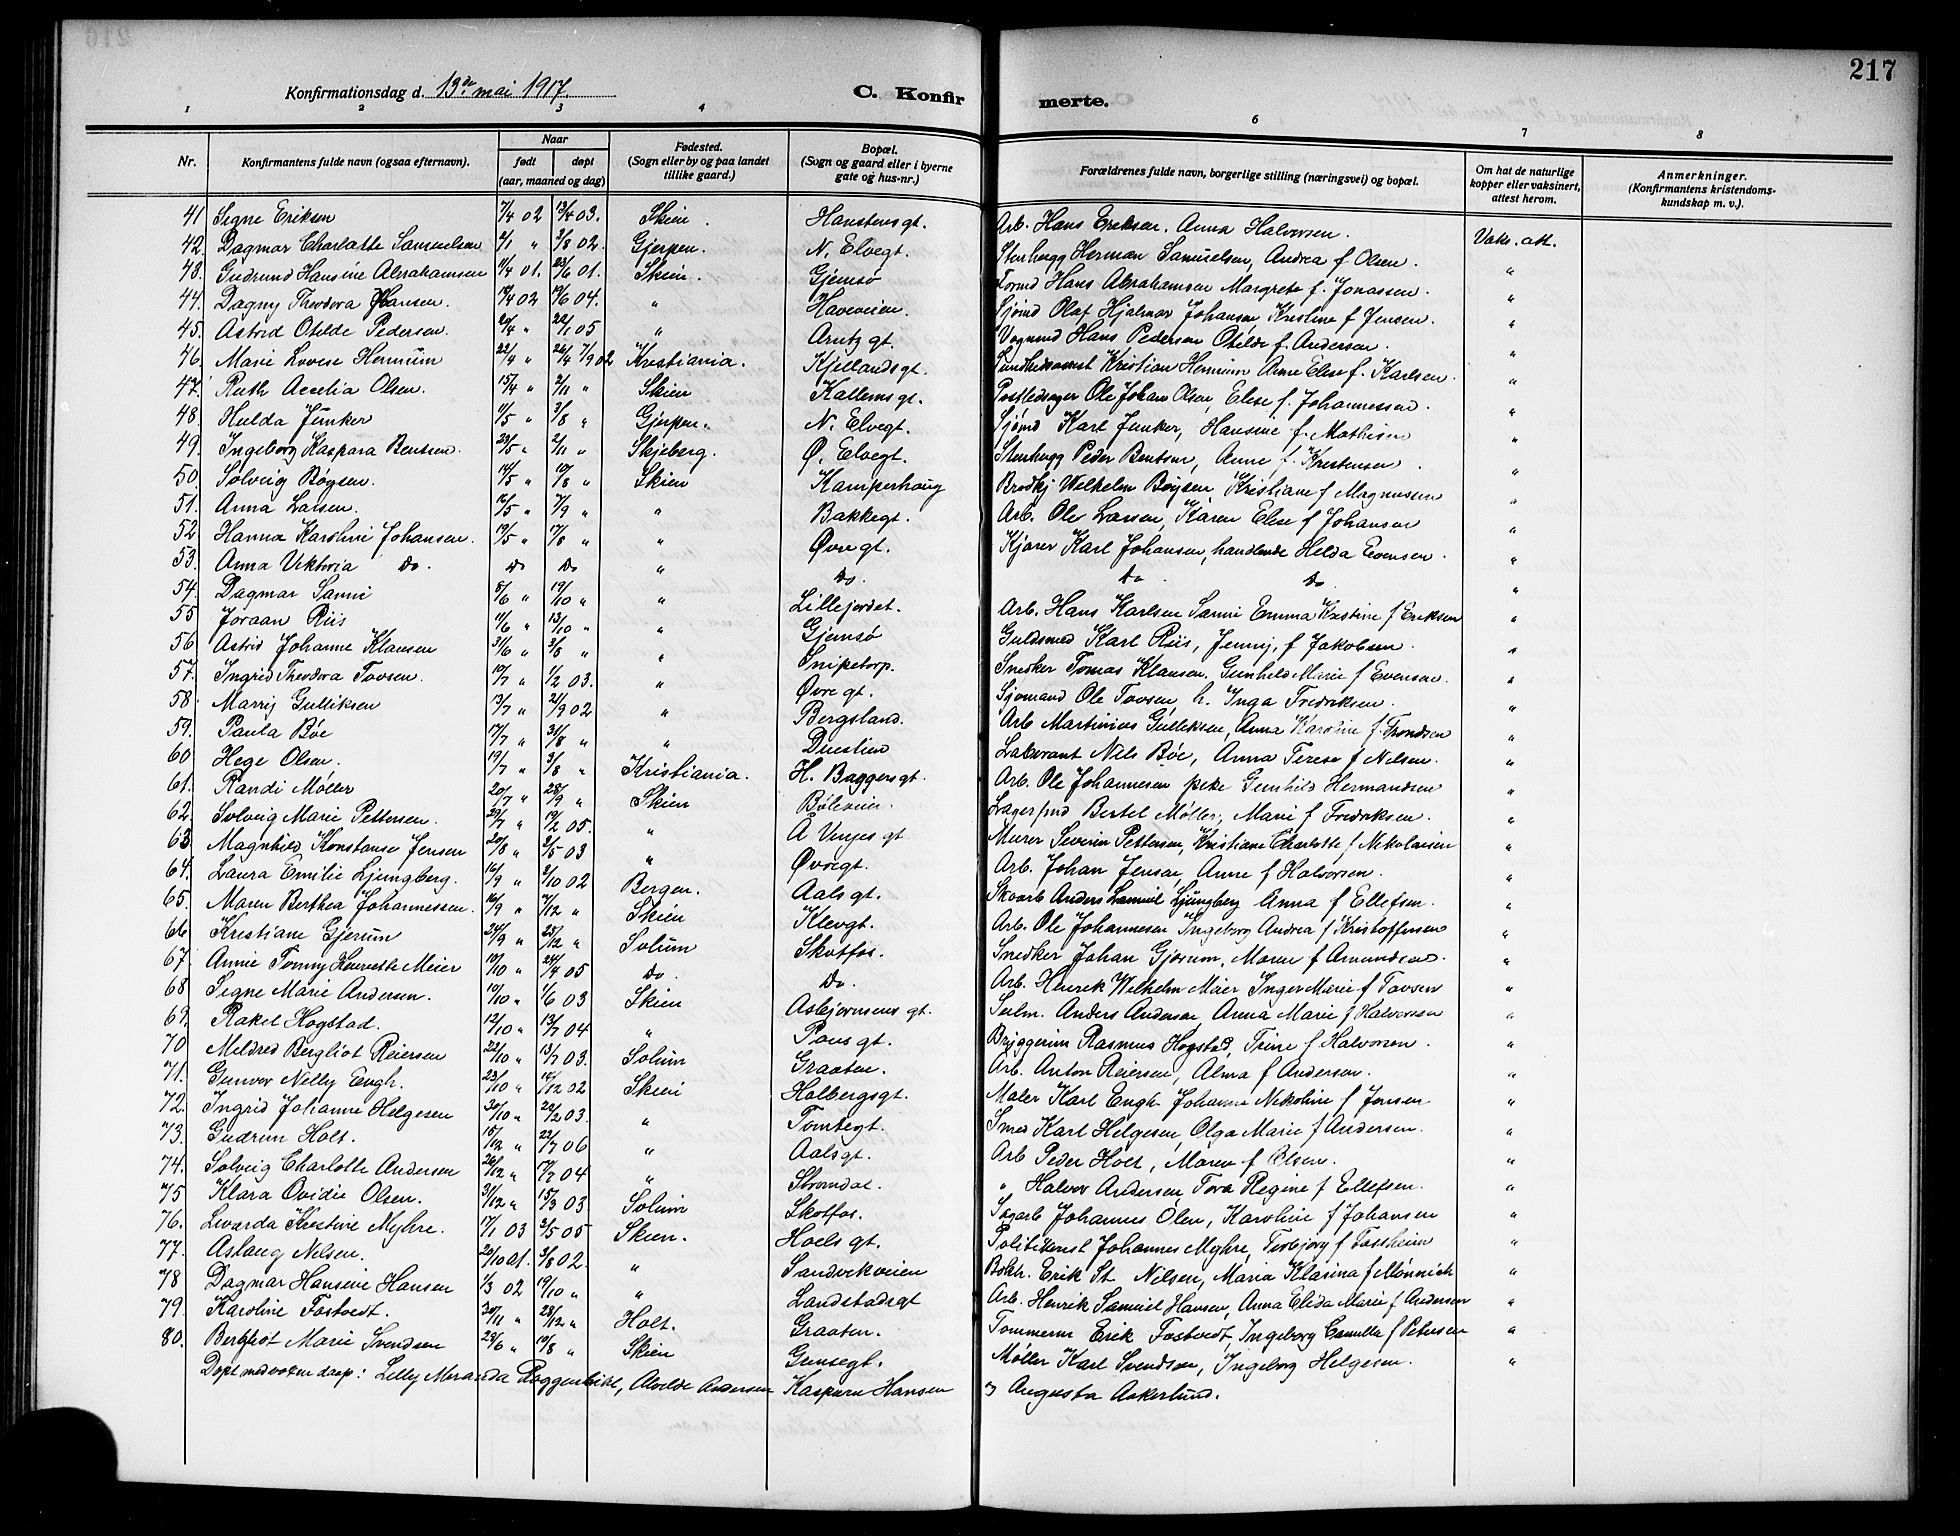 217
Konfirmationsdag d. 13de mai 1917. C. Konfirmerte.
1 2 3 4 6 7 8
Nr. Konfirmantens fulde navn (ogsaa efternavn). Naar født døpt (aar, maaned og dag) Fødested. (Sogn eller by og paa landet tillike gaard.) Bopæl. (Sogn og gaard eller i byerne gate og hus-nr.) Forældrenes fulde navn, borgerlige stilling (næringsvei) og bopæl. Om hat de naturlige kopper eller vaksinert, attest herom. Anmerkninger. (Konfirmantens kristendomskundskap m. v.).
41 Signe Eriksen 7/4 02 13/4 03. Skien. Hanstensgt. Arb. Hans Eriksen. Anna Halvorsen. Vaks. att.
42. Dagmar Charlotte Samuelsen 2/1 " 3/8 02. Gjerpen. N. Elvegt. Stenhugg Herman Samuelsen, Andrea f Olsen. "
43. Gudrund Hansine Abrahamsen 11/4 01. 23/6 01. Skien. Gjemsø Hans Abrahamsen Margrete f. Jonassen. "
44. Dagny Theodora Hansen. 19/4 02 19/6 04. " Haveveien. Sjømd Olaf Hjalmar Johansen Kristine f Jensen. "
45. Astrid Otilde Pedersen. 20/4 " 22/1 05 " Arntz gt. Vognmd Hans Pedersen Otilde f. Andersen. "
46. Marie Lovise Hermum 22/4 " 26/4 7/9 02 Kristiania. Kjellandsgt. Kristian Hermum Anne Elise f. Karlsen. "
47. Ruth Acelia Olsen. 15/4 " 2/11 " Skien Kallemsgt. Ole Johan Olsen, Elise f. Johannessen. "
48. Hulda Junker 11/5 " 3/8 " Gjerpen. N. Elvegt. Sjømd Karl Junker, Hansine f. Mathisen "
49. Ingeborg Kaspara Bentsen. 29/5 " 2/11 " Skjeberg. Ø. Elvegt. Stenhugg Peder Bentsen, Anne f. Kristensen. "
50. Solveig Bøgsen. 14/5 " 10/8 " Skien Kamperhaug Wilhelm Bøgsen, Kristiane f Magnusen "
51. Anna Larsen. 16/5 " 7/9 " " Bakkegt. Arb. Ole Larsen, Karen Elise f Johansen "
52 Hanna Karoline Johansen. 19/5 " 17/8 " " Øvregt. Kjører Karl Johansen, handlende Helda Evensen. "
53. Anna Viktoria Do. Do Do " Do. Do. Do "
54. Dagmar Sanni 8/6 " 19/10 " " Lillejordet. Arb. Hans Karlsen Sanni Emma Kristine f Eriksen "
55 Joraan Riis 11/6 " 13/10 " " Gjemsø Guldsmed Karl Riis, Jenny, f Jakobsen. "
56 Astrid Johanne Klausen 31/6 " 3/8 " " Snipetorp. Snedker Tomas Klausen, Gunhild Marie f Evensen. "
57. Ingrid Theodora Tovsen. 19/7 " 1/2 03. " Øvregt. Sjømand Ole Tovsen, h. Inga Fredriksen. "
58. Marry Gulliksen 13/7 " 21/9 02 " Bergsland. Arb Martinius Gulleksen, Anna Karoline f. Trondsen "
59. Paula Bøe 17/7 " 31/8 " " Duestien Laborant Nils Bøe, Anna Terese f Nilsen. "
60 Hege Olsen. 19/7 " 3/8 " Kristiania. H. Baggersgt. Arb. Ole Johannesen pike Gunhild Hermandsen "
61. Randi Møller 20/7 " 28/9 " Skien Bøleveien. Lagerfmd Bertel Møller, Marie f Fredriksen. "
62. Solveig Marie Pettersen. 29/7 " 19/2 05. " A Vinjes gt Murer Severin Pettersen, Kristiane Charlotte f Nikolaisen "
63 Magnhild Konstanse Jensen 20/8 " 2/5 03 " Øvregt. Arb. Johan Jensen, Anne f Halvorsen. "
64. Laura Emilie Ljungberg. 16/9 " 2/10 02 Bergen. Aalsgt. Skoarb Anders Samuel Ljungberg Anna f Ellefsen. "
65. Maren Berthea Johannessen. 16/9 " 7/12 " Skien Klevgt. Arb. Ole Johannesen Ingeborg Andrea f Kristoffersen "
66 Kristiane Gjerum 24/9 " 25/12 " Solum Skotfos. Snedker Johan Gjerum, Maren f Amundsen. "
67. Annie Tonny Henriette Meier 10/10 " 24/4 05 Do. Do. Arb. Henrik Wilhelm Maier Inger Marie f Tovsen "
68 Signe Marie Andersen. 19/10 " 1/6 03 Skien Asbjørnsens gt. Seilm. Anders Andersen, Anna Marie f Halvorsen "
69. Rakel Hogstad. 12/10 " 13/7 04 " Pousgt. Bryggerim Rasmus Hogstad, Trine f Halvorsen. "
70 Mildred Bergliot Reiersen 22/10 " 13/7 03. Solum Graaten. Arb. Anton Reiersen, Alma f Andersen. "
71. Gunvor Nelly Engh. 23/10 " 16/12 02 Skien Holbergsgt. Maler Karl Engh Johanne Nikoline f Jensen "
72. Ingrid Johanne Helgesen 30/10 " 29/2 03. " Tomtegt. Smed Karl Helgesen, Olga Marie f Andersen. "
73. Gudrun Holt. 15/12 " 22/7 06 " Aalsgt. Arb Peder Holt, Maren f Olsen. "
74. Solveig Charlotte Andersen 26/12 " 17/7 04 " Strømdal. " Halvor Andersen, Tora Regine f Ellefsen. "
75 Klara Ovidie Olsen. 31/12 " 15/3 03 Solum Skotfos. Sagarb Johannes Olen, Karoline f Johansen "
76. Lovarda Kristine Myhre. 17/1 03 3/5 05 Skien. Hoelsgt. Politikonst Johannes Myhre, Torbjørg f Fossheim "
77. Aslaug Nilsen. 20/10 01. 3/8 02. " Sandvikveien Bokh. Erik St Nilsen, Maria Klasina f Mønnich "
78 Dagmar Hansine Hansen 1/3 02 19/10 " " Landstadsgt Arb. Henrik Samuel Hansen, Anna Elida Marie f Andersen "
79. Karoline Fostvedt. 30/11 " 28/12 " Holt. Graaten. Tømmerm Erik Fostvedt, Ingeborg Camilla f Petersen "
80. Bergliot Marie Svendsen 23/6 " 19/8 " Skien Gunsegt. Møller Karl Svendsen, Ingeborg Helgesen. "
Døpt med voxen daap: Lilly Miranda Roggenbihl, Alvilde Andersen Kaspara Hansen og Augusta Askerlund.